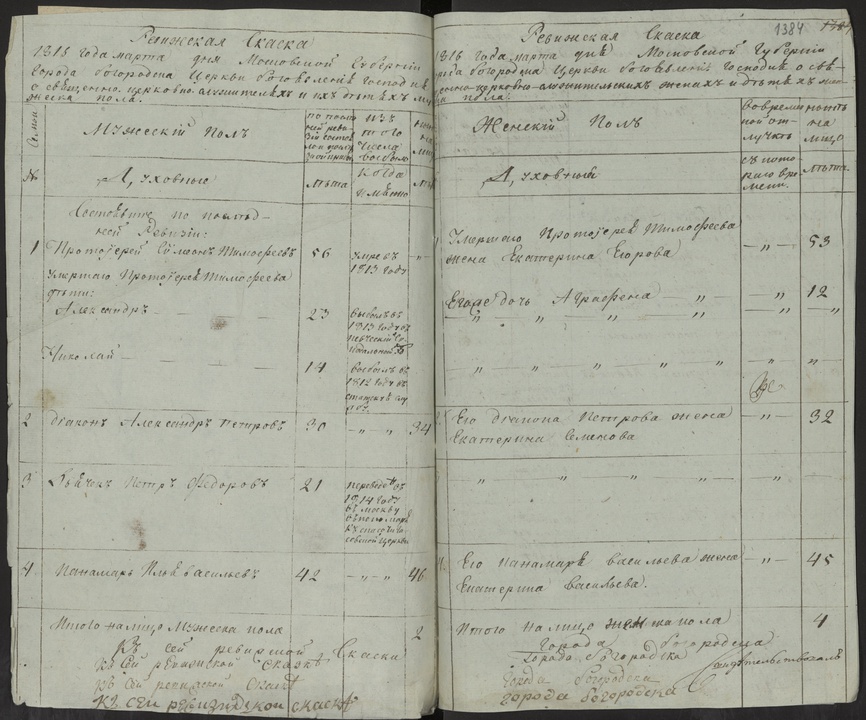 Ревижская Скаска
1816 года марта дня Московской Губернiи
города богородска Церкви богоявленiя Господня
о священно церковно-служителяхъ и ихъ дѣтяхъ му-
жеска пола.
Семьи
Мужескiй Полъ
по послѣд
ней реви
зiи состо
изъ
того
числа
выбыло
№
Духовные
лѣта
когда
имянно
Состоявшiе по послѣд-
ней Ревизiи:
1 Протоiерей Сѵмеонъ Тимофѣевъ 56 умре въ „
1813 году
умершаго Протоiерея Тимофеева
дѣти:
Александръ 23 выбылъ въ
1813 году въ
Николай 14 выбылъ въ
1812 году въ
2 дiаконъ Александръ Петровъ 30 „ „ 34
3 Дьячекъ Петръ Федоровъ 21 переведенъ въ
1814 году
въ москву
4 Панамарь Илья васильевъ 42 „ „ 46
Итого налицо Мужеска пола 2
Къ сей ревизской Скаски
къ сей ревизской скаскѣ
къ сей ревизской скаскѣ
къ сей ревизской скаскѣ
1384
Ревижская Скаска
1816 года марта дня Московской Губернiи
города богородска Церкви богоявленiя Господня о свя-
щенно-церковно-служительскихъ женахъ и дѣтяхъ жен-
ска пола.
Женскiй Полъ
во време
нной от
лучкѣ
нынѣ
на
лицо
Духовный
съ кото
раго вре
мени.
лѣта
Умершаго Протоiерея Тимофеева
жена Екатерина Егорова „ 53
Егоже дочь Аграфена „ „ 12
„ „ „ „ „ „
„ „ „ „ „ „
Его дiакона Петрова жена „ 32
Екатерина Семенова
„ „ „ „ „ „
Его Панамаря васильева жена „ 45
Екатерина васильева.
Итого налицо женска пола 4
Города богородска
города богородска свидѣтельствовалъ
города богородска
города богородска